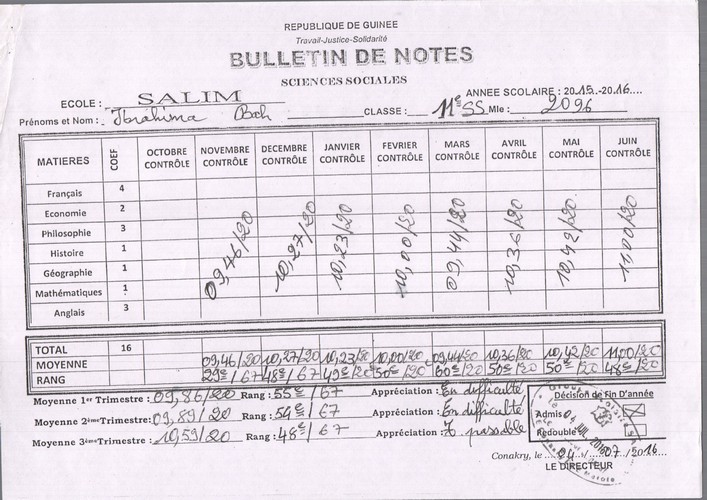 REPUBLIQUE DE GUINEE
Travail-Justice-Solidarité
BULLETIN DE NOTES
SCIENCES SOCIALES
ANNEE SCOLAIRE : 2015..-2016....
ECOLE : SALIM
CLASSE : 11e SS Mle : 2096
Prénoms et Nom : Ibrahima Bah
MATIERES COEF OCTOBRE CONTRÔLE NOVEMBRE CONTRÔLE DECEMBRE CONTRÔLE JANVIER CONTRÔLE FEVRIER CONTRÔLE MARS CONTRÔLE AVRIL CONTRÔLE MAI CONTRÔLE JUIN CONTRÔLE
Français 4
Economie 2
Philosophie 3
Histoire 1
Géographie 1
Mathématiques 1
Anglais 3
09,46/20 10,27/20 10,23/20 10,00/20 09,44/20 10,36/20 10,42/20 11,00/20
TOTAL 16
MOYENNE 09,46/20 10,27/20 10,23/20 10,00/20 09,44/20 10,36/20 10,42/20 11,00/20
RANG
Moyenne 1er Trimestre : 09,86/20 Rang : 55e / 67 Appréciation : En difficulté
Moyenne 2ème Trimestre : 09,89/20 Rang : 54e / 67 Appréciation : En difficulté
Moyenne 3ème Trimestre : 10,59/20 Rang : 48e / 67 Appréciation : T. passable
Décision de Fin D'année
Admis
Redouble
Conakry, le ...04../..07../2016...
LE DIRECTEUR